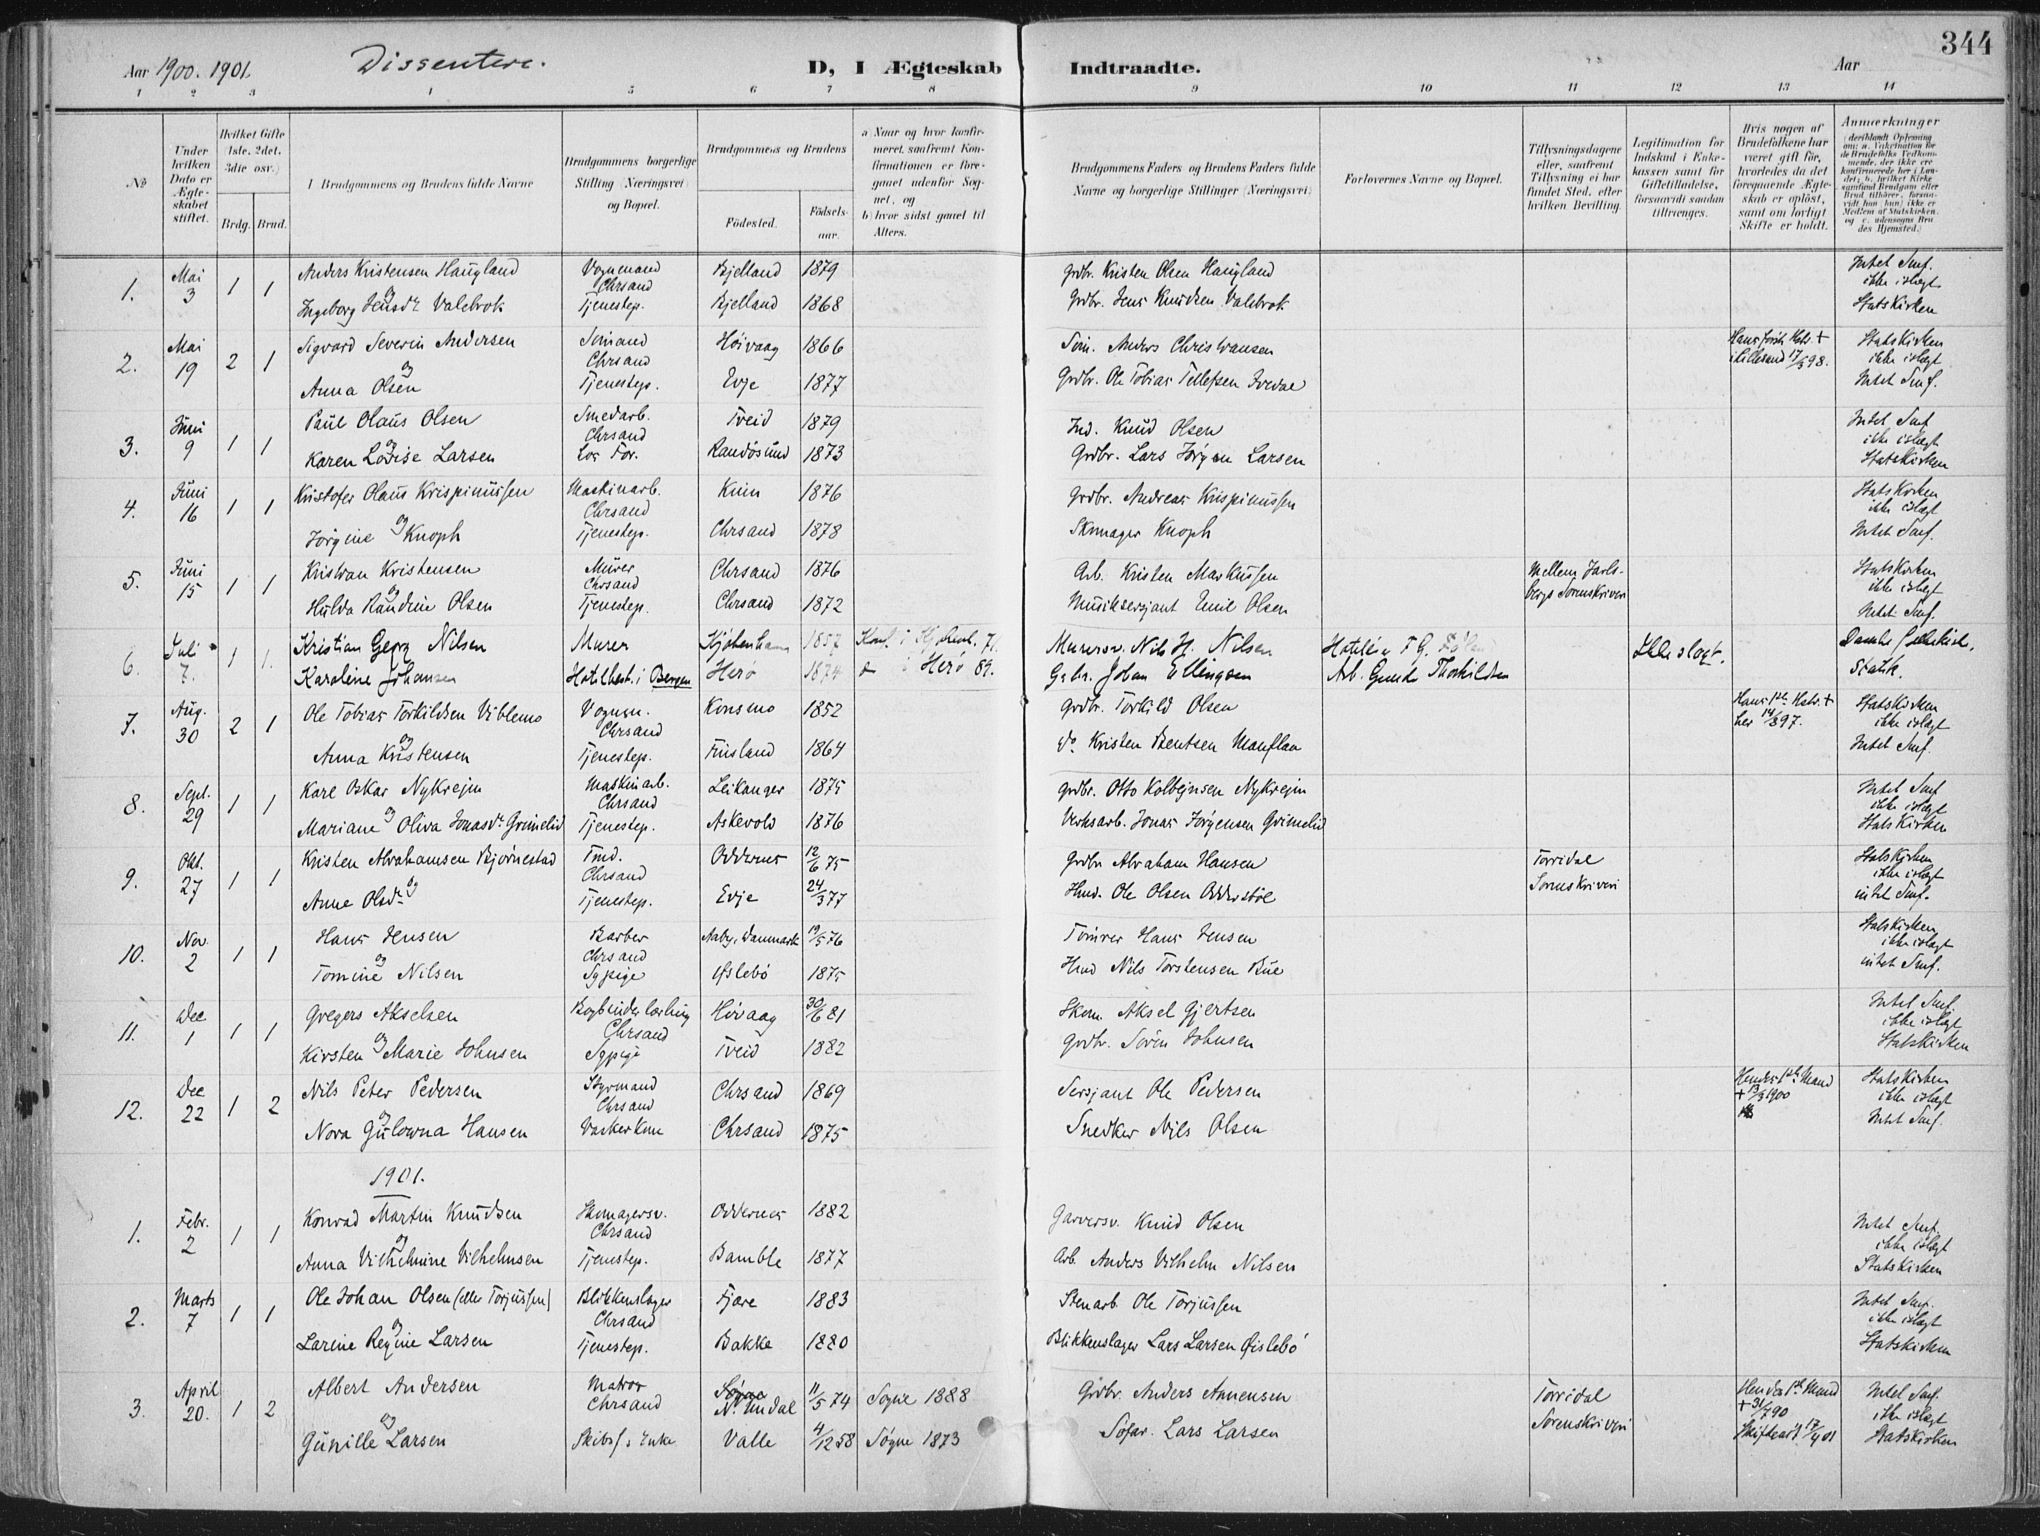 344
Aar 1900. 1901. Dissentere. D, I Ægteskab Indtraadte. Aar
1 2 3 4 5 6 7 8 9 10 11 12 13 14
No
Under hvilken Dato er Ægteskabet stiftet.
Hvilket Gifte (1ste, 2det, 3die osv.)
Brdg. Brud.
Brudgommens og Brudens fulde Navne
Brudgommens borgerlige Stilling (Næringsvei) og Bopæl.
Brudgommens og Brudens
Födested.
Födselsaar.
a) Naar og hvor konfirmeret, saafremt Konfirmationen er foregaaet udenfor Sognet, og
b) hvor sidst gaaet til Alters.
Brudgommens Faders og Brudens Faders fulde Navne og borgerlige Stillinger (Næringsvei).
Forlovernes Navne og Bopæl.
Tillysningsdagene eller, saafremt Tillysning ei har fundet Sted, efter hvilken Bevilling.
Legitimation for Indskud i Enkekassen samt for Giftetilladelse, forsaavidt saadan tiltrænges.
Hvis nogen af Brudefolkene har været gift før, hvorledes da det foregaaende Ægteskab er oplöst, samt om lovligt Skifte er holdt.
Anmærkninger
1. Mai 3 1 1 Anders Kristensen Haugland Vognmand Chrsand Bjelland 1879 Grdbr. Kristen Olsen Haugland Intet Smf.
og ikke islægt
Ingeborg Jensdr. Valebrok Tjenestep. Bjelland 1868 Grdbr. Jens Knudsen Valebrok Statskirken
2. Mai 19 2 1 Sigvard Severin Andersen Sömand Chrsand Höivaag 1866 Söm. Anders Christiansen Statskirken
og ikke islægt
Anna Olsen Tjenestep. Evje 1877 Grdbr. Ole Tobias Tellefsen Intet Smf.
3. Juni 9 1 1 Paul Olaus Olsen Smedarb. Chrsand Tveid 1879 Ind. Knud Olsen Intet Smf
og ikke islægt
Karen Lovise Larsen Randösund 1873 Grdbr. Lars Jörgen Larsen Statskirken
4. Juni 16 1 1 Kristofer Olaus Krispinussen Maskinarb. Chrsand 1876 Grdbr. Andreas Krispinussen Statskirken
og ikke islægt
Jörgine Knoph Tjenestep. Chrsand 1878 Skomager Knoph Intet Smf.
5. Juni 15 1 1 Kristian Kristensen Murer Chrsand Chrsand 1876 Arb. Kristen Markussen Mellem Jarlsbergs Sorenskriveri Statskirken
og ikke islægt
Hulda Randine Olsen Tjenestep. Chrsand 1872 Musiksersjant Emil Olsen Intet Smf.
6. Juli 7. 1 1. Kristian Georg Nilsen Murer Kjöbenhavn 1857 Murersv. Nils H. Nilsen Ikke slægt.
Karoline Johansen Hotelbest. i Bergen Herö 1874 i Herö 89. Johan Ellingsen Arb. Thorkildsen Statsk.
7. Aug. 30 2 1 Ole Tobias Torkildsen Viblemo Vognm. Chrsand Konsmo 1852 Grdbr. Torkild Olsen Hans 1ste Hstr. + her 14/3 97. Statskirken
og ikke islægt
Anna Kristensen Tjenestep. Finsland 1864 Do Kristen Bentsen Manflaa Intet Smf.
8. Sept. 29 1 1 Karl Oskar Nykrejm Maskinarb. Chrsand Leikanger 1875 Grdbr. Otto Kolbejnsen Nykrejm Intet Smf
og ikke islægt
Mariane Oliva Jonasdr. Grimelid Tjenestep. Askevold 1876 Verksarb. Jonas Jörgensen Grimelid Statskirken
9. Okt. 27 1 1 Kristen Abrahamsen Bjørnestad Tmd. Chrsand Oddernes 12/6 75 Grdbr Abraham Hansen Torridal Statskirken
og ikke islægt
Anne Olsdr. Tjenestep. Evje 24/3 77 Hmd. Ole Olsen Sorenskriveri intet Smf.
10. Nov. 2 1 1 Hans Jensen Barber Chrsand Aaby, Danmark 19/5 76 Tömrer Hans Jensen Statskirken
og ikke islægt
Tomine Nilsen Sypige Øslebö 1875 Hmd Nils Torstensen Bue intet Smf.
11. Dec 1 1 1 Gregers Akselsen Bogbinderlærling Chrsand Hövaag 30/6 81 Skom. Aksel Gjertsen Intet Smf.
og ikke islægt
Kirsten Marie Johnsen Sypige Tveid 1882 Grdbr. Sören Johnsen Statskirken
12. Dec 22 1 2 Nils Peter Pedersen Styrmand Chrsand Chrsand 1869 Sersjant Ole Pedersen Hendes 1ste Mand + 1900 Statskirken
og ikke islægt
Nora Gulowna Hansen Vaskerkone Chrsand 1875 Snedker Nils Olsen Intet Smf.
1901.
1. Febr. 2 1 1 Konrad Martin Knudsen Skomagersv. Chrsand Oddernes 1882 Garversv. Knud Olsen Intet Smf.
og ikke islægt
Anna Vilhelmine Vilhelmsen Tjenestep. Bamble 1877 Arb. Anders Vilhelm Nilsen Statskirken
2. Marts 7 1 1 Ole Johan Olsen (eller Torjussen) Blikkenslager Chrsand Fjære 1883 Stenarb. Ole Torjussen Intet Smf.
og ikke islægt
Larine Regine Larsen Tjenestep. Bakke 1880 Blikkenslager Lars Larsen Øislebö Statskirken
3. April 20. 1 2 Albert Andersen Matros Chrsand Søgne N. Undal 11/5 74 Sogne 1888 Grdbr. Anders Annensen Torridal Hendes 1ste Mand + 31/7 90 Intet Smf.
og ikke islægt
Gunille Larsen Skibsf.s Enke Valle 4/12 58 Søgne 1873 Lars Larsen Sorenskriveri 17/4 01 Statskirken